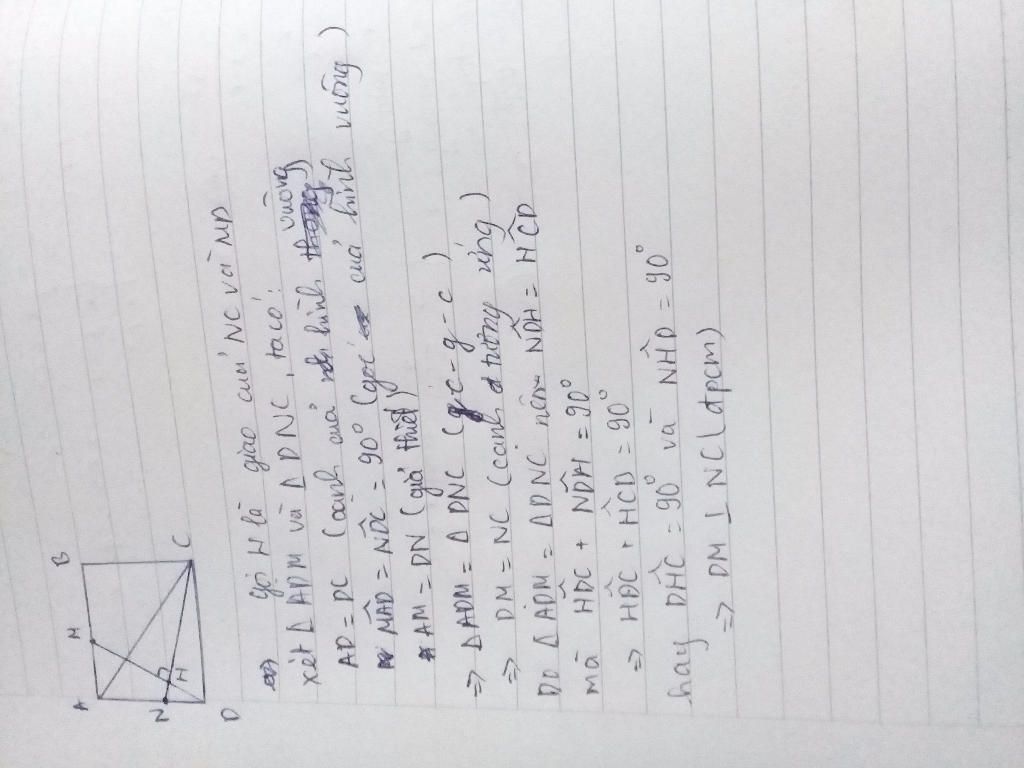 A M B
N H
D C
gọi H là giao của NC và MD
xét Δ ADM và Δ DNC, ta có:
AD = DC (cạnh của hình vuông
MÂD = ND̂C = 90° (góc của hình vuông)
AM = DN (giả thiết)
=> ΔADM = ΔDNC (c-g-c)
=> DM = NC (cạnh tương ứng)
Do ΔADM = ΔDNC nên ND̂H = HĈD
mà HD̂C + ND̂H = 90°
=> HD̂C + HĈD = 90°
hay DĤC = 90° và NĤD = 90°
=> DM ⊥ NC (đpcm)